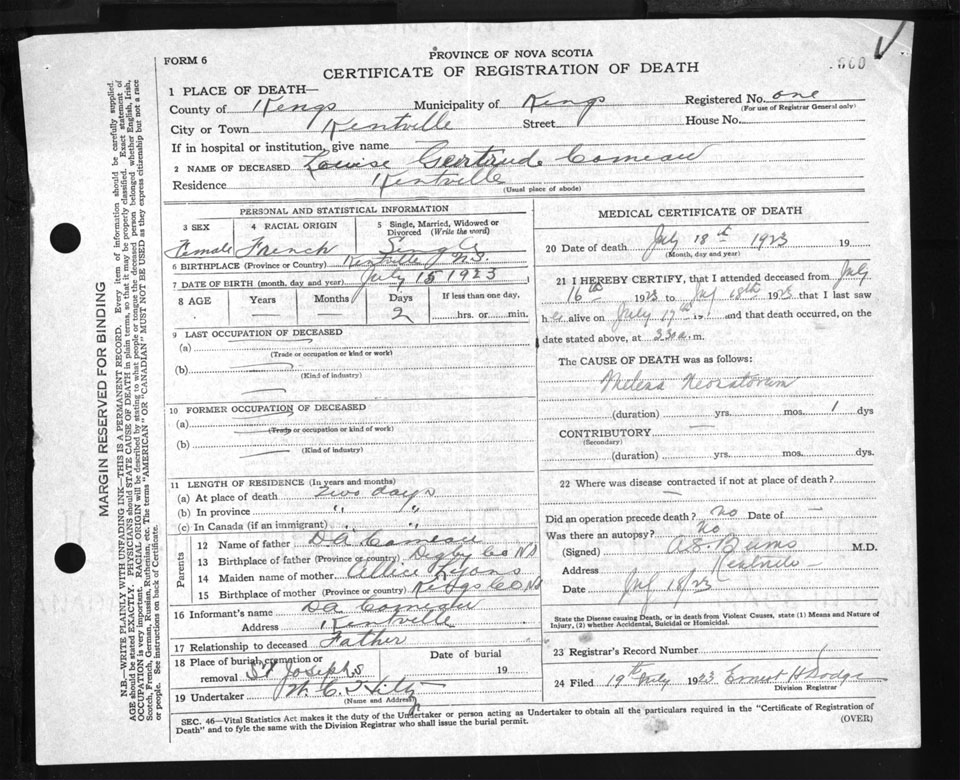 FORM 6
PROVINCE OF NOVA SCOTIA
CERTIFICATE OF REGISTRATION OF DEATH
1 PLACE OF DEATH—
County of Kings Municipality of Kings Registered No. one
(For use of Registrar General only)
City or Town Kentville Street House No.
If in hospital or institution, give name
2 NAME OF DECEASED Louise Gertrude Comeau
Residence Kentville
(Usual place of abode)
MARGIN RESERVED FOR BINDING
N.B.—WRITE PLAINLY WITH UNFADING INK—THIS IS A PERMANENT RECORD. Every item of information should be carefully supplied.
AGE should be stated EXACTLY. PHYSICIANS should STATE CAUSE OF DEATH in plain terms, so that it may be properly classified. Exact statement of
OCCUPATION is very important. RACIAL ORIGIN will be described by stating to what people or tongue the deceased person belonged whether English, Irish,
Scotch, French, German, Russian, Ruthenian, etc. The terms "AMERICAN" OR "CANADIAN" MUST NOT BE USED as they express citizenship but not a race
or people. See instructions on back of Certificate.
PERSONAL AND STATISTICAL INFORMATION
3 SEX 4 RACIAL ORIGIN 5 Single, Married, Widowed or
Divorced (Write the word)
Female French Single
6 BIRTHPLACE (Province or Country) Kentville N.S.
7 DATE OF BIRTH (month, day, and year) July 15 1923
8 AGE Years Months Days If less than one day,
2 hrs. or min.
9 LAST OCCUPATION OF DECEASED
(a)
(Trade or occupation or kind or work)
(b)
(Kind of industry)
10 FORMER OCCUPATION OF DECEASED
(a)
(Trade or occupation or kind of work)
(b)
(Kind of industry)
11 LENGTH OF RESIDENCE (In years and months)
(a) At place of death two days
(b) In province " "
(c) In Canada (if an immigrant) " "
Parents
12 Name of father D.A. Comeau
13 Birthplace of father (Province or country) Digby Co N.S
14 Maiden name of mother Lyons
15 Birthplace of mother (Province or country) Kings Co N.S
16 Informant's name D.A Comeau
Address Kentville
17 Relationship to deceased Father
18 Place of burial, cremation or Date of burial
removal St Josephs 19
19 Undertaker
(Name and Address)
MEDICAL CERTIFICATE OF DEATH
20 Date of death July 18th 1923 19
(Month, day and year)
21 I HEREBY CERTIFY, that I attended deceased from July
16th 1923 to July 18th 1923 that I last saw
h er alive on July 17th 19 and that death occurred, on
date stated above, at m.
The CAUSE OF DEATH was as follows:
Melena Neonatorum
(duration) yrs. mos. 1 dys
CONTRIBUTORY
(Secondary)
(duration) yrs. mos. dys.
22 Where was disease contracted if not at place of death?
Did an operation precede death? no Date of
Was there an autopsy? No
(Signed) A.S. Burns M.D.
Address Kentville
Date July 18/23
State the Disease causing Death, or in death from Violent Causes, state (1) Means and Nature of
Injury, (2) whether Accidental, Suicidal or Homicidal.
23 Registrar's Record Number
24 Filed 19th July 1923 Ernest H Dodge
Division Registrar
SEC. 46—Vital Statistics Act makes it the duty of the Undertaker or person acting as Undertaker to obtain all the particulars required in the "Certificate of Registration of
Death" and to fyle the same with the Division Registrar who shall issue the burial permit.
(OVER)